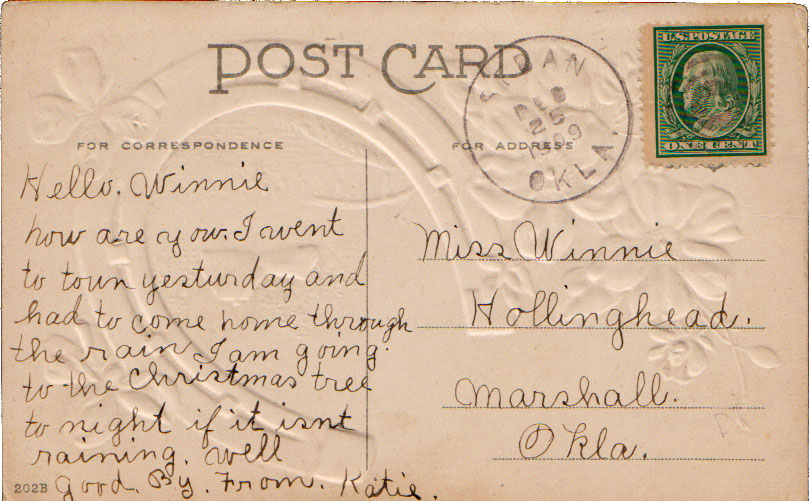 POST CARD
FOR CORRESPONDENCE
FOR ADDRESS
U.S. POSTAGE
ONE CENT
1909
OKLA.
Hello. Winnie
how are you. I went
to toun yesturday and
had to come home through
the rain I am going.
to the Christmas tree
to night if it isnt
raining. well
Good. By. From. Katie.
202B
Miss Winnie
Hollinghead.
Marshall.
Okla.